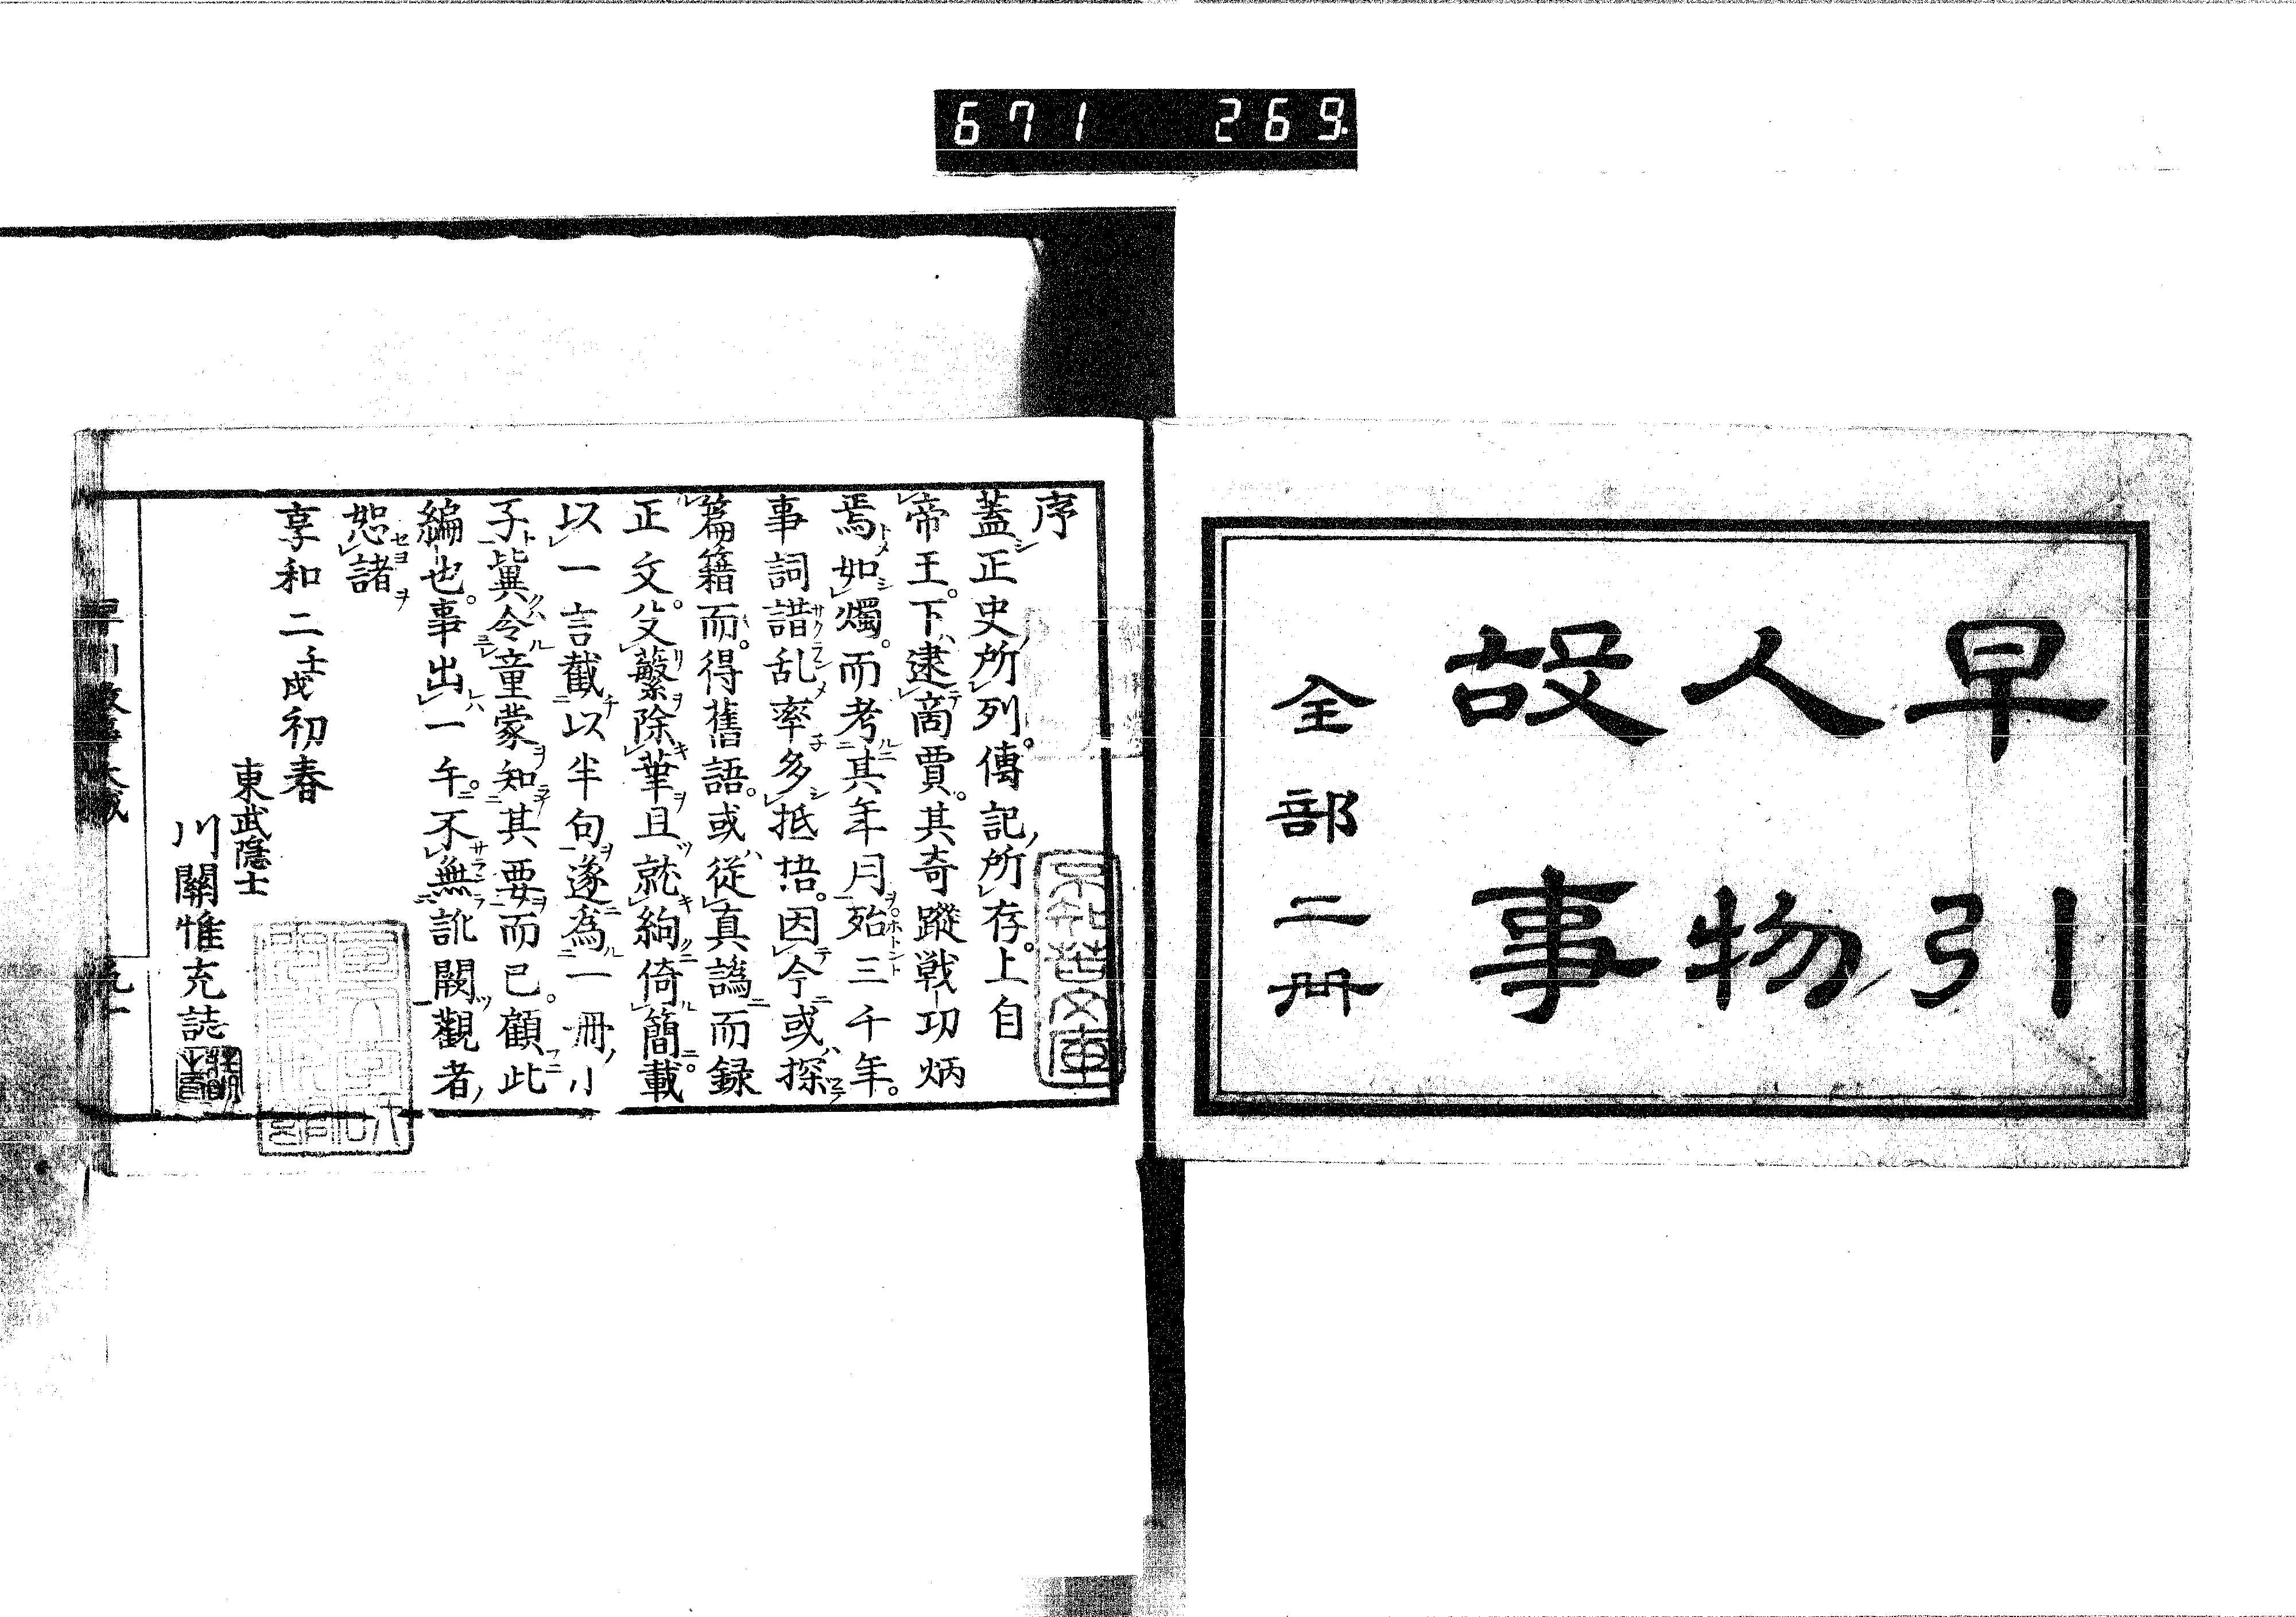 671 269.
早引
人物
故事
全部二冊
序
蓋正史所列。傳記所存。上自
帝王。下逮啇賈。其奇蹤戦功炳
焉如燭。而考其年月殆三千年。
事詞譛乱率多抵捂。因今或探
篇籍而。得舊語。或從真譌而録
正文。父蘩除華且就絢倚簡載
以一言截以半句遂為一冊小
子冀令童蒙知其要而已。顧此
編也。事出一午。不無訛闕觀者
恕諸
享和二壬戌初春
東武隠士
川關惟充誌